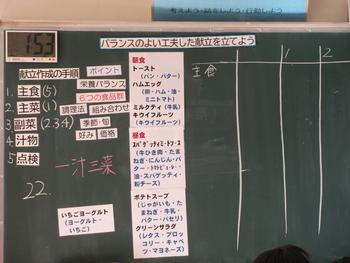 考えよう・話そう・行動しよう
153
バランスのよい工夫した献立を立てよう
献立作成の手順
1. 主食(5)
2. 主菜(1)
3. 副菜(2.3.4)
4. 汁物
5 点検
ポイント
栄養バランス
6つの食品群
調理法
組み合わせ
季節・旬
好み
価格
一汁三菜
22.
いちごヨーグルト
(ヨーグルト・
いちご)
朝食
トースト
(パン・バター)
ハムエッグ
(卵・ハム・油・
ミニトマト)
ミルクティ(牛乳)
キウイフルーツ
(キウイフルーツ)
昼食
スパゲッティミートソース
(牛ひき肉・たま
ねぎ・にんじん・バ
ター・トマトピューレ・
油・スパゲッティ・
粉チーズ)
ポテトスープ
(じゃがいも・た
まねぎ・牛乳・
バター・パセリ)
グリーンサラダ
(レタス・ブロッ
コリー・キャベ
ツ・マヨネーズ)
1
2
主食